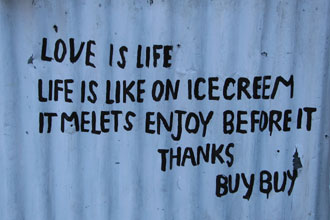 LOVE IS LIFE
LIFE IS LIKE ON ICECREEM
IT MELETS ENJOY BEFORE IT
THANKS
BUY BUY